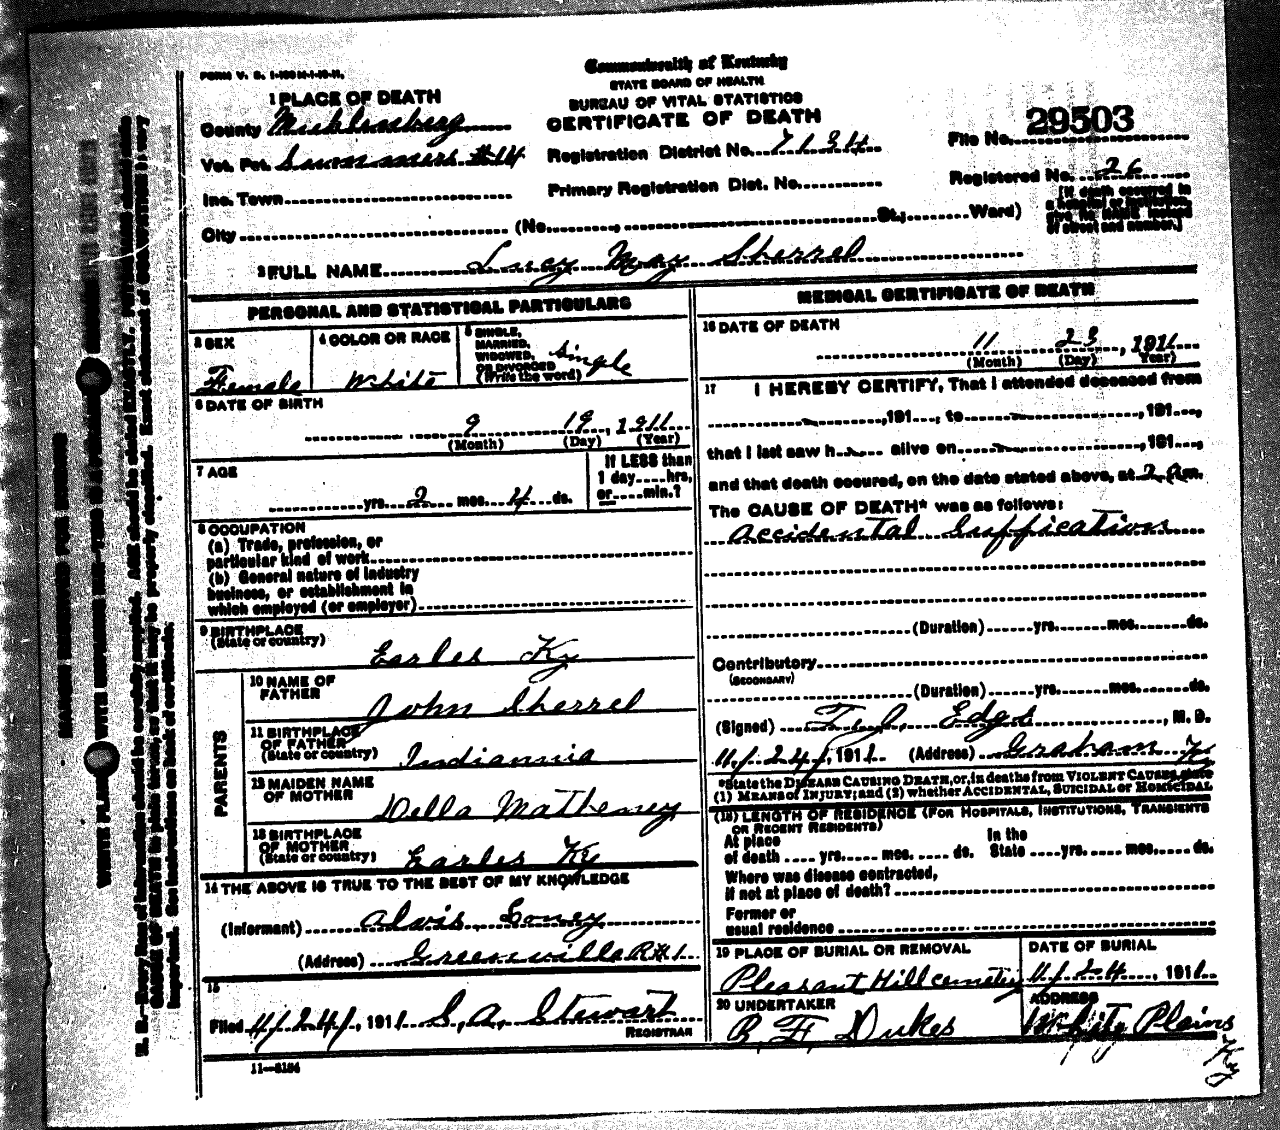 FORM V. S. 1-
Commonwealth of Kentucky
STATE BOARD OF HEALTH
BUREAU OF VITAL STATISTICS
CERTIFICATE OF DEATH
1 PLACE OF DEATH
County Muhlenberg
Vot. Pct. Summers #14
Registration District No. 7134
File No. 29503
Inc. Town
Primary Registration Dist. No.
Registered No. 26
City (No. , St.; Ward)
[If death occurred in
a hospital or institution,
give its NAME instead
of street and number.]
2 FULL NAME Lucy May Sherrel
PERSONAL AND STATISTICAL PARTICULARS
3 SEX
Female
4 COLOR OR RACE
White
5 SINGLE,
MARRIED,
WIDOWED,
OR DIVORCED
(Write the word)
Single
6 DATE OF BIRTH
9 19, 1911
(Month) (Day) (Year)
7 AGE
yrs. 2 mos. 4 ds.
If LESS than
1 day hrs.
or min.?
8 OCCUPATION
(a) Trade, profession, or
particular kind of work
(b) General nature of industry
business, or establishment in
which employed (or employer)
9 BIRTHPLACE
(State or country)
Earles Ky
PARENTS
10 NAME OF
FATHER
John Sherrel
11 BIRTHPLACE
OF FATHER
(State or country)
Indiannia
12 MAIDEN NAME
OF MOTHER
Della Matheney
13 BIRTHPLACE
OF MOTHER
(State or country)
Earles Ky
14 THE ABOVE IS TRUE TO THE BEST OF MY KNOWLEDGE
(Informant) Alvis
(Address) Greenville R#1
15
Filed 11/24/, 1911 S. A. Stewart
REGISTRAR
11-3184
MEDICAL CERTIFICATE OF DEATH
16 DATE OF DEATH
11 23, 1911
(Month) (Day) (Year)
17 I HEREBY CERTIFY, That I attended deceased from
, 191 , to , 191 ,
that I last saw h alive on , 191 ,
and that death occured, on the date stated above, at 2 A m.
The CAUSE OF DEATH* was as follows:
Accidental Suffication
(Duration) yrs. mos. ds.
Contributory
(SECONDARY)
(Duration) yrs. mos. ds.
(Signed) , M. D.
11/24/, 1911 (Address) Graham Ky
*State the DISEASE CAUSING DEATH, or, in deaths from VIOLENT CAUSES, state
(1) MEANS of INJURY; and (2) whether ACCIDENTAL, SUICIDAL or HOMICIDAL
(18) LENGTH OF RESIDENCE (FOR HOSPITALS, INSTITUTIONS, TRANSIENTS
OR RECENT RESIDENTS)
At place
of death yrs. mos. ds.
In the
State yrs. mos. ds.
Where was disease contracted,
if not at place of death?
Former or
usual residence
19 PLACE OF BURIAL OR REMOVAL
Pleasant Hill cemetery
DATE OF BURIAL
11/24, 1911
20 UNDERTAKER
R. F. Dukes
ADDRESS
White Plains
Ky
MARGIN RESERVED FOR BINDING
WRITE PLAINLY WITH UNFADING INK—THIS IS A PERMANENT RECORD
N. B.—Every item of information should be carefully supplied. AGE should be stated EXACTLY. PHYSICIANS should state
CAUSE OF DEATH in plain terms, so that it may be properly classified. Exact statement of OCCUPATION is very
important. See instructions on back of certificate.